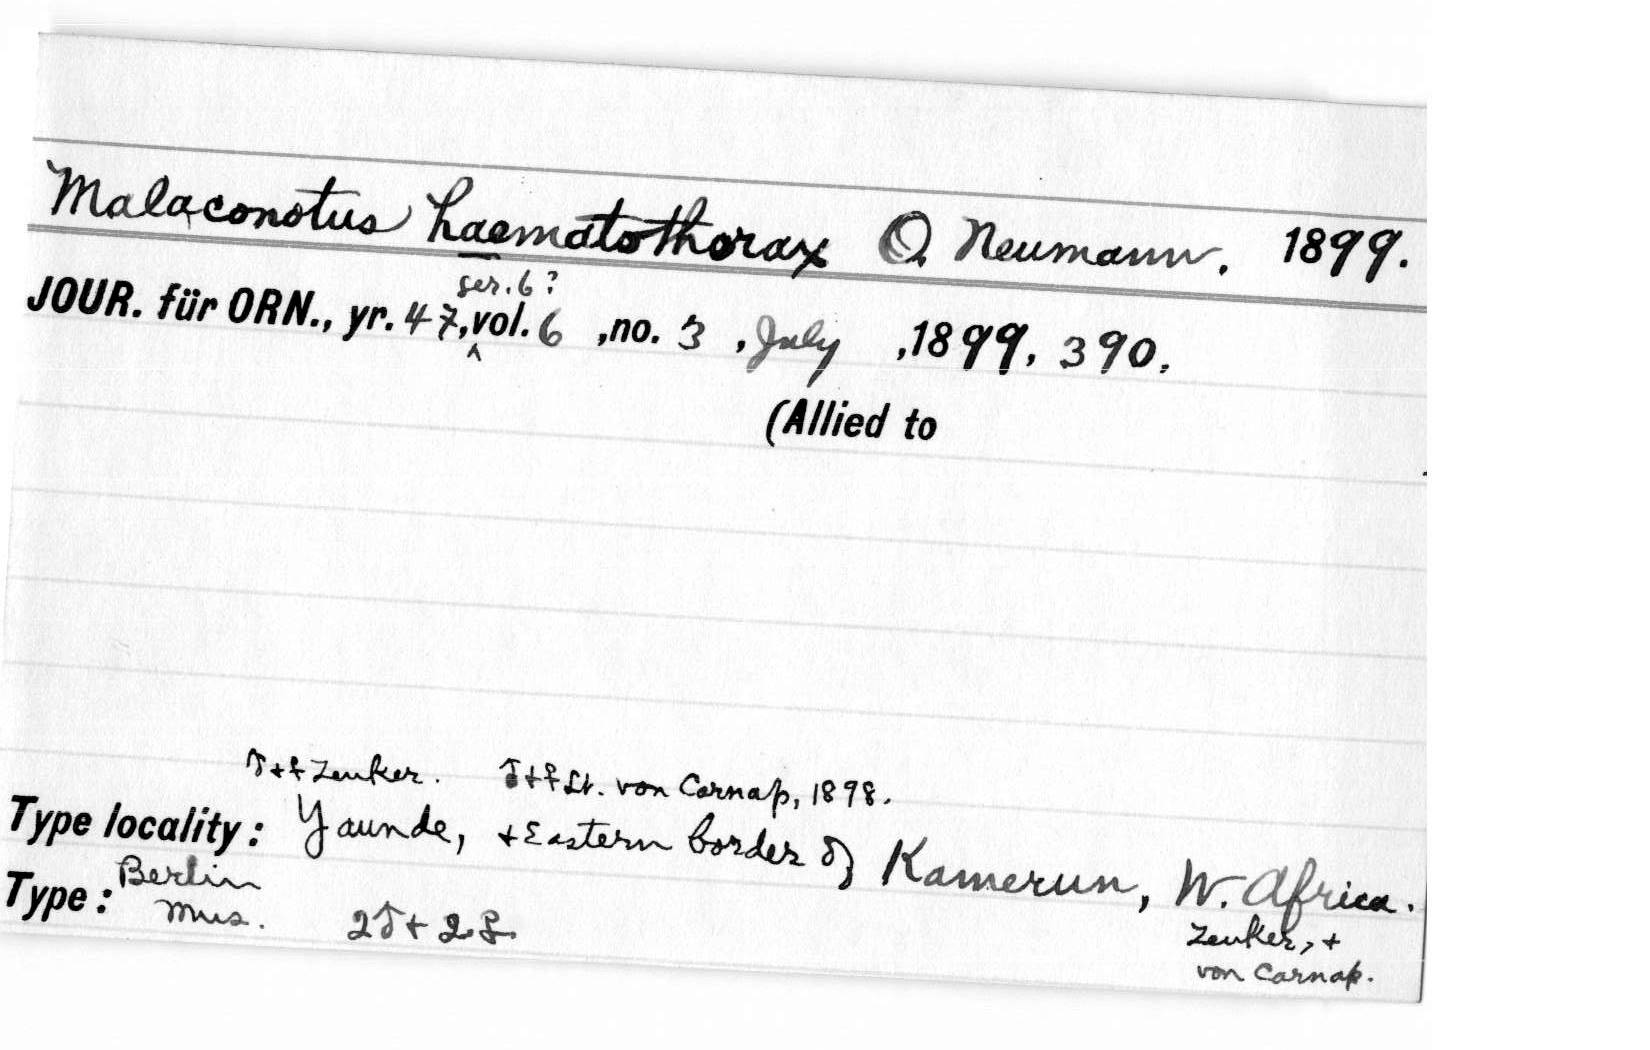 Malaconotus haematothorax O. Neumann, 1899.
ser. 6 ?
JOUR. für ORN., yr. 47, ‸ vol. 6 , no. 3 , July , 1899, 390.
(Allied to
♂ + ♀ Zenker. ♂ + ♀ Lt. von Carnap, 1898.
Type locality: Yaunde, + Eastern border of Kamerun, W. Africa.
Type: Berlin Mus. 2♂ + 2♀.
Zenker, +
von Carnap.